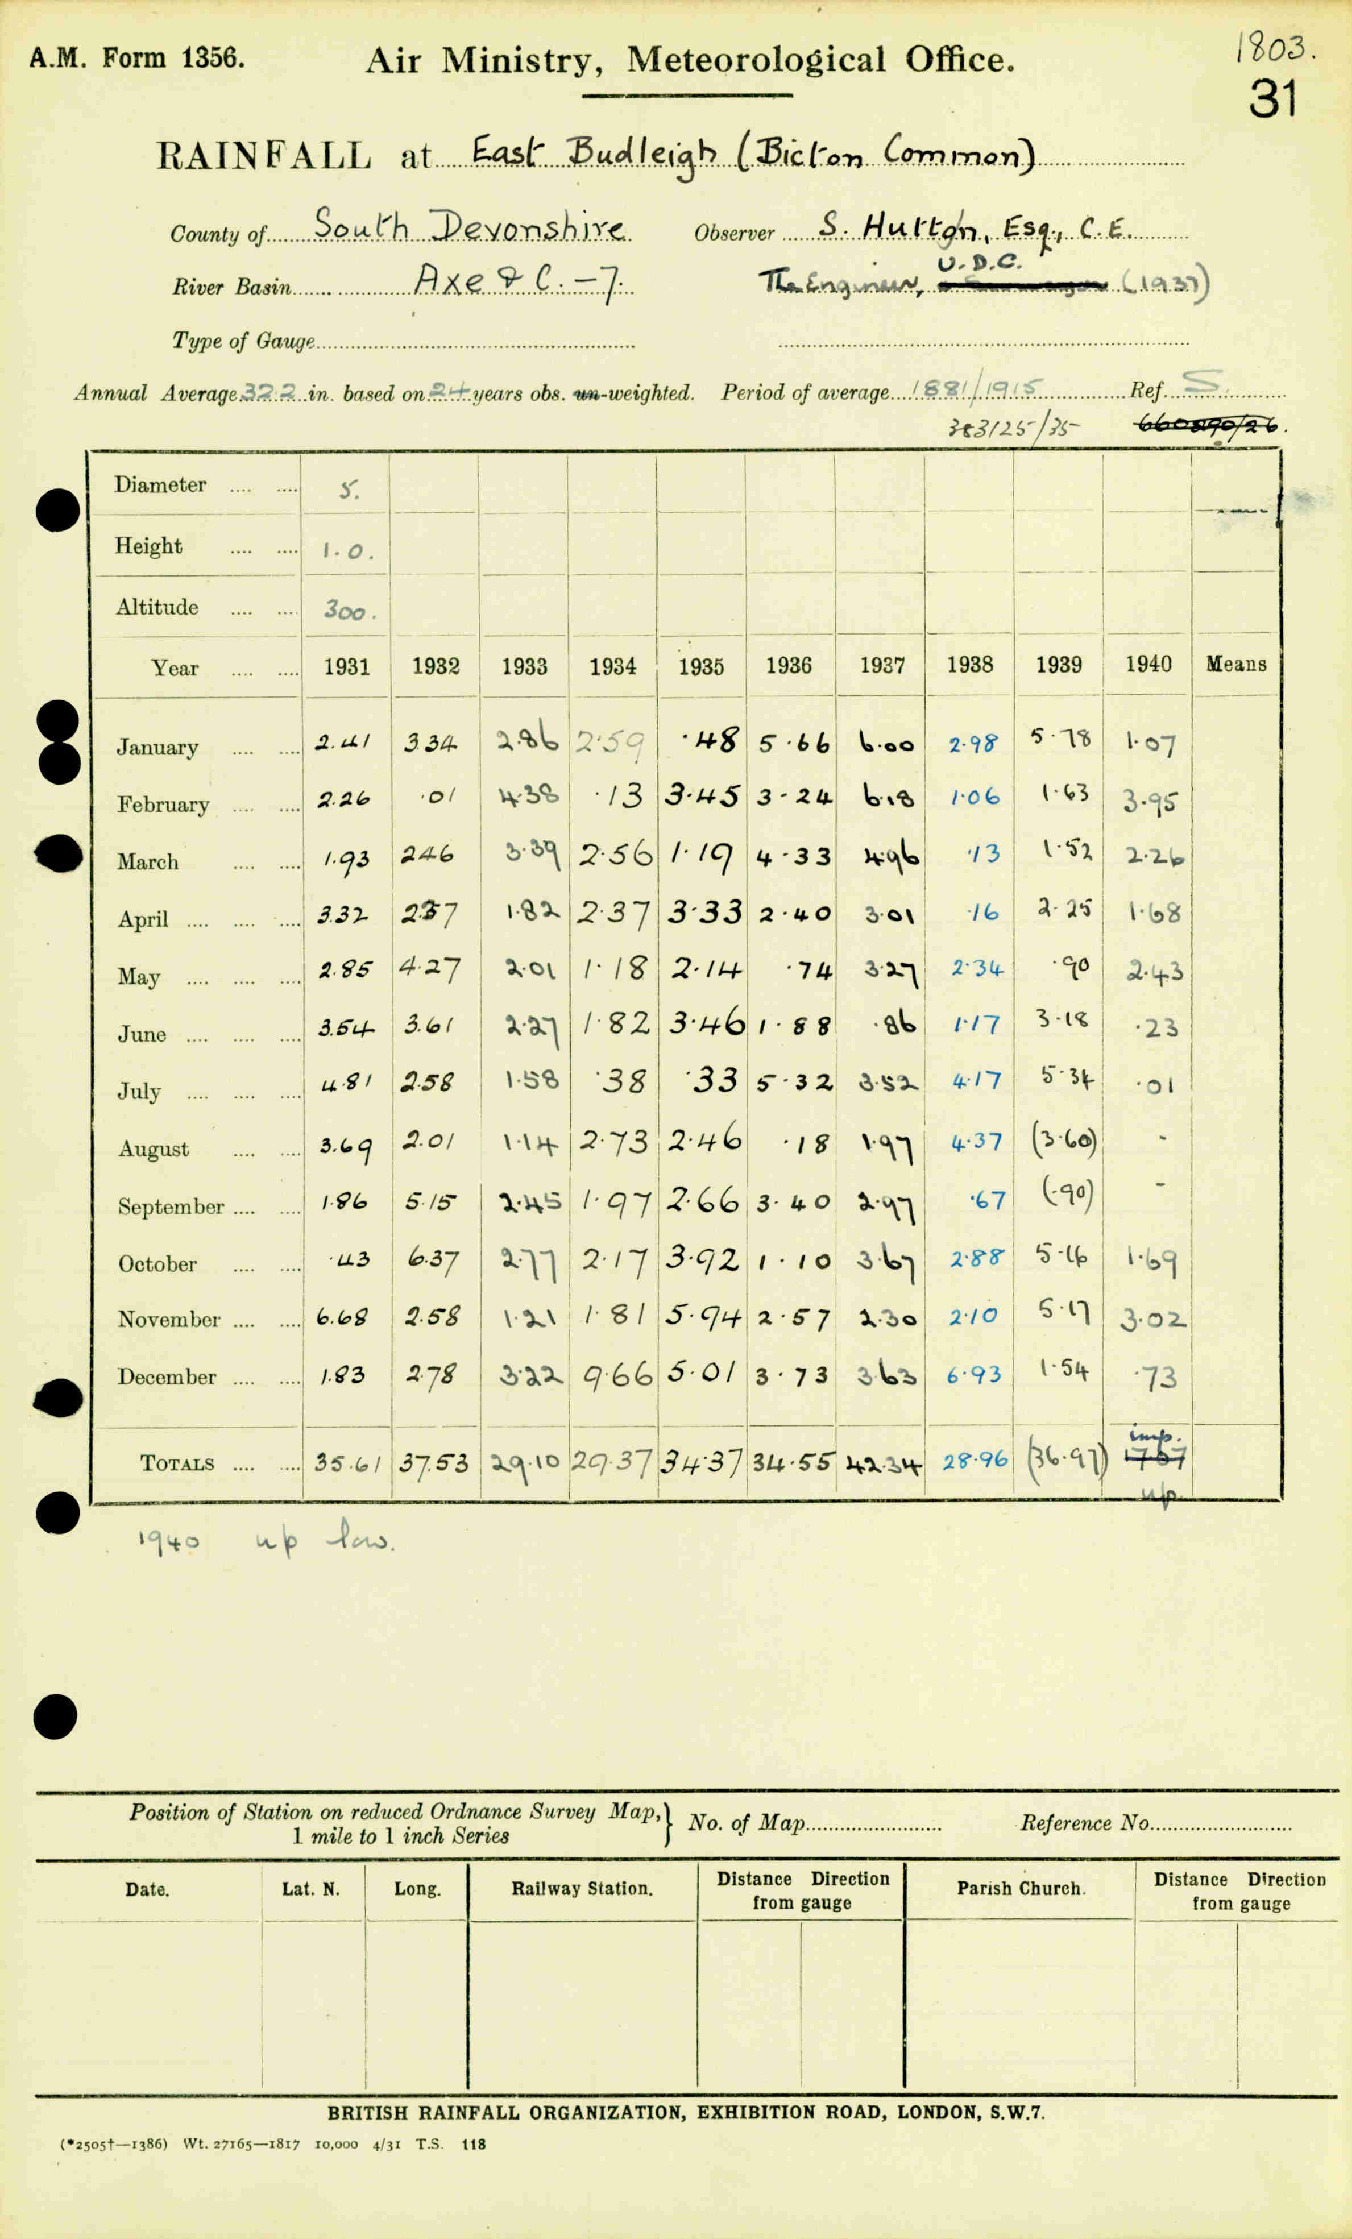 1803.
A.M. Form 1356. Air Ministry, Meteorological Office.
31
RAINFALL at East Budleigh (Bicton Common)
County of South Devonshire Observer S. Hutton, Esq., C.E.
River Basin Axe & C. – 7. The Engineer, U.D.C. (1937)
Type of Gauge
Annual Average 32.2 in. based on 24 years obs. un-weighted. Period of average 1881/1915 Ref. S.
383125/35 660890/26.
Diameter 5.
Height 1.0.
Altitude 300.
Year 1931 1932 1933 1934 1935 1936 1937 1938 1939 1940 Means
January 2.41 3.34 2.86 2.59 .48 5.66 6.00 2.98 5.78 1.07
February 2.26 .01 4.38 .13 3.45 3.24 6.18 1.06 1.63 3.95
March 1.93 2.46 3.39 2.56 1.19 4.33 4.96 .13 1.52 2.26
April 3.32 2.37 1.82 2.37 3.33 2.40 3.01 .16 2.25 1.68
May 2.85 4.27 2.01 1.18 2.14 .74 3.27 2.34 .90 2.43
June 3.54 3.61 2.27 1.82 3.46 1.88 .86 1.17 3.18 .23
July 4.81 2.58 1.58 .38 .33 5.32 3.52 4.17 5.34 .01
August 3.69 2.01 1.14 2.73 2.46 .18 1.97 4.37 (3.60) -
September 1.86 5.15 2.45 1.97 2.66 3.40 2.97 .67 (.90) -
October .43 6.37 2.77 2.17 3.92 1.10 3.67 2.88 5.16 1.69
November 6.68 2.58 1.21 1.81 5.94 2.57 2.30 2.10 5.17 3.02
December 1.83 2.78 3.22 9.66 5.01 3.73 3.63 6.93 1.54 .73
imp.
TOTALS 35.61 37.53 29.10 29.37 34.37 34.55 42.34 28.96 (36.97) 17.07
up.
1940 up low.
Position of Station on reduced Ordnance Survey Map, } No. of Map Reference No.
1 mile to 1 inch Series
Date. Lat. N. Long. Railway Station. Distance Direction from gauge Parish Church. Distance Direction from gauge
BRITISH RAINFALL ORGANIZATION, EXHIBITION ROAD, LONDON, S.W.7.
(*2505†—1386) Wt. 27165—1817 10,000 4/31 T.S. 118